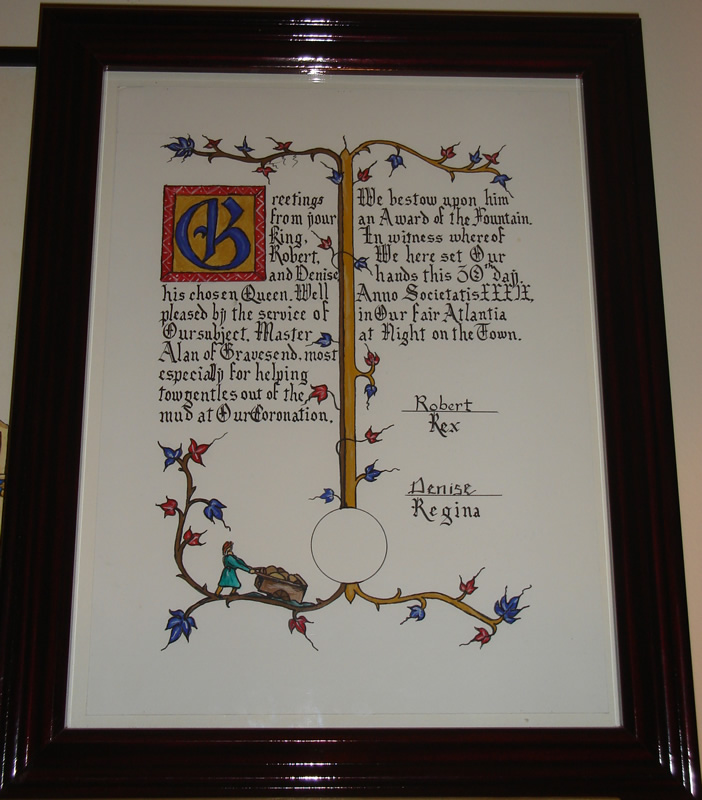 Greetings
from your
King,
Robert,
and Denise
his chosen Queen. Well
pleased by the service of
Our subject, Master
Alan of Gravesend, most
especially for helping
tow gentles out of the
mud at Our Coronation.
We bestow upon him
an Award of the Fountain.
In witness whereof
We here set Our
hands this 30th day,
Anno Societatis XXXIX,
in Our fair Atlantia
at Night on the Town.
Robert
Rex
Denise
Regina